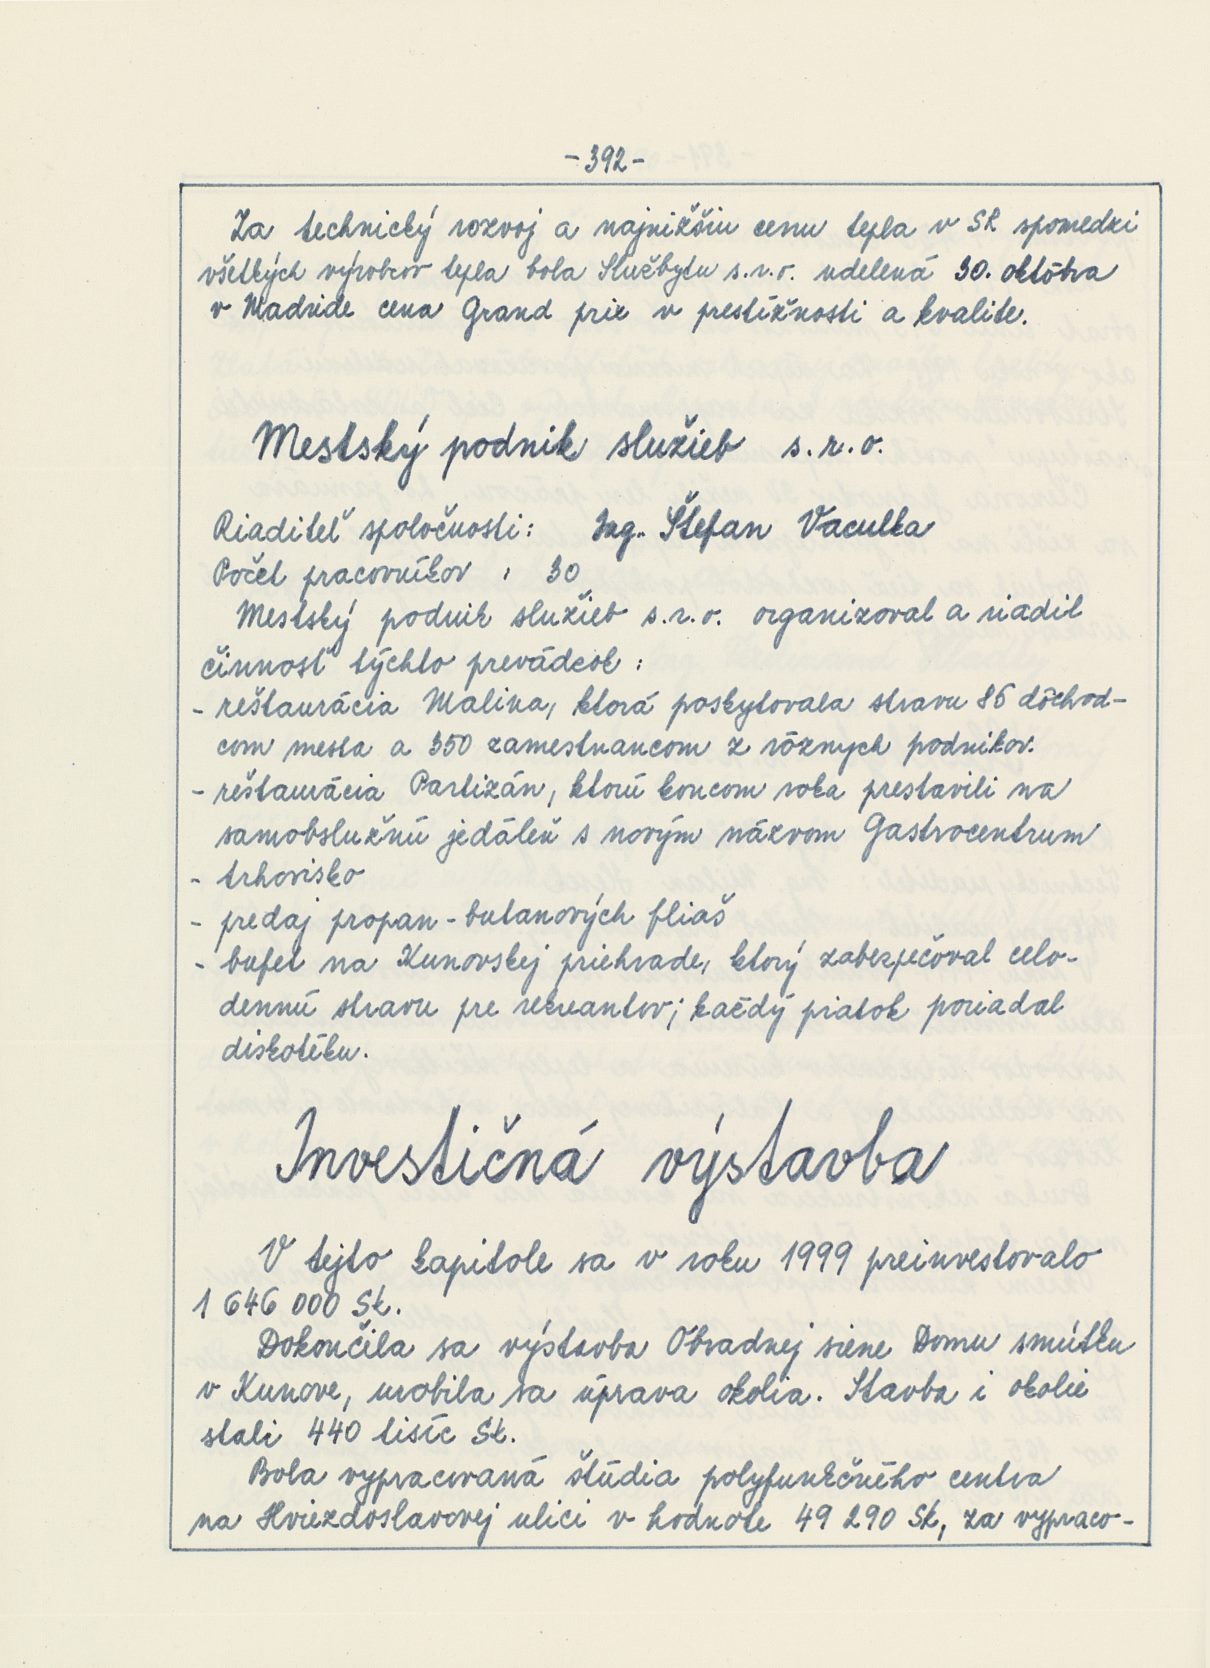 -392-
Za technický rozvoj a najnižšiu cenu tepla v SR spomedzi
všetkých výrobcov tepla bola Službytu s.r.o. udelená 30. októbra
v Madride cena Grand prix v prestížnosti a kvalite.
Mestský podnik služieb s.r.o.
Riaditeľ spoločnosti: Ing. Štefan Vaculka
Počet pracovníkov : 30
Mestský podnik služieb s.r.o. organizoval a riadil
činnosť týchto prevádzok :
- reštaurácia Malina, ktorá poskytovala stravu 86 dôchod-
com mesta a 350 zamestnancom z rôznych podnikov.
- reštaurácia Partizán, ktorú koncom roka prestavili na
samobslužnú jedáleň s novým názvom Gastrocentrum
- trhovisko
- predaj propan-butanových fliaš
- bufet na Kunovskej priehrade, ktorý zabezpečoval celo-
dennú stravu pre rekreantov; každý piatok poriadal
diskotéku.
Investičná výstavba
V tejto kapitole sa v roku 1999 preinvestovalo
1 646 000 Sk.
Dokončila sa výstavba Obradnej siene Domu smútku
v Kunove, urobila sa úprava okolia. Stavba i okolie
stáli 440 tisíc Sk.
Bola vypracovaná štúdia polyfunkčného centra
na Hviezdoslavovej ulici v hodnote 49 290 Sk, za vypraco-